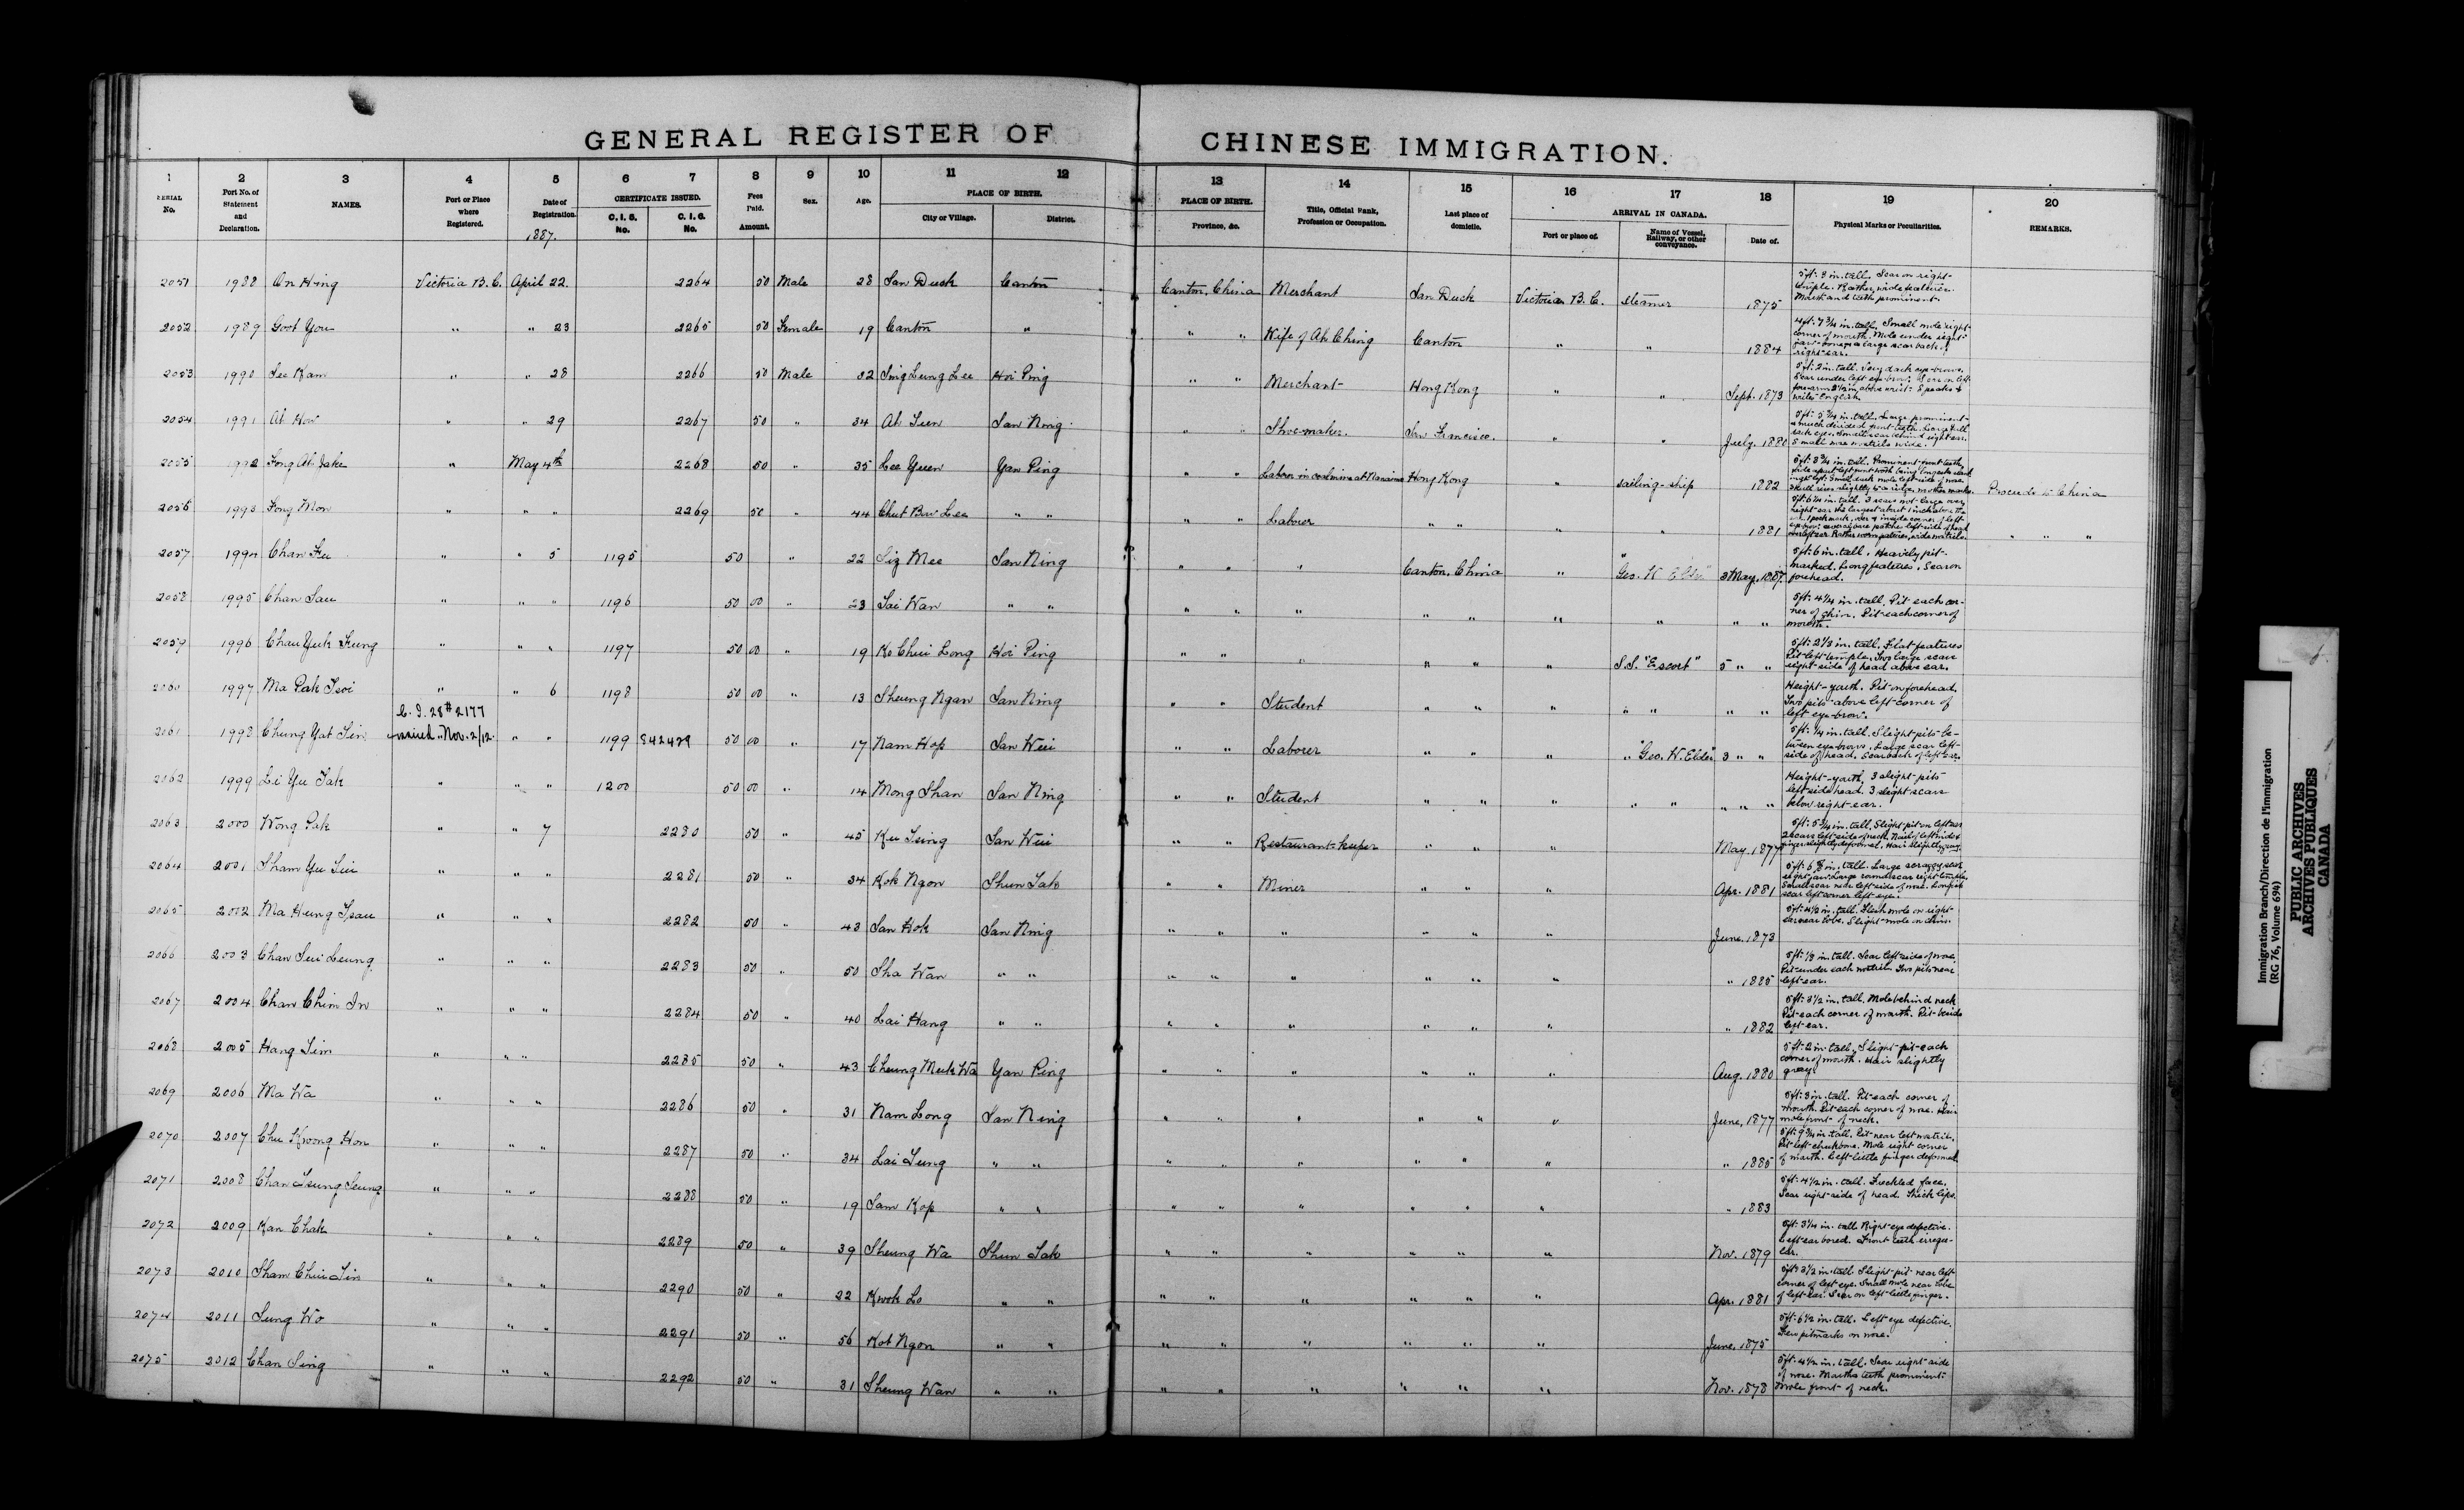 GENERAL REGISTER OF CHINESE IMMIGRATION.
1 2 3 4 5 6 7 8 9 10 11 12 13 14 15 16 17 18 19 20
SERIAL No. Port No. of Statement and Declaration. NAMES. Port or Place where Registered. Date of Registration. CERTIFICATE ISSUED. C. I. 5. No. C. I. 6. No. Fees Paid. Amount. Sex. Age. PLACE OF BIRTH. City or Village. District. PLACE OF BIRTH. Province, &c. Title, Official Rank, Profession or Occupation. Last place of domicile. ARRIVAL IN CANADA. Port or place of. Name of Vessel, Railway, or other conveyance. Date of. Physical Marks or Peculiarities. REMARKS.
1887.
2051 1988 On Hing Victoria B.C. April 22. 2264 50 Male 28 San Duck Canton Canton, China Merchant San Duck Victoria B.C. steamer 1875 5 ft. 8 in. tall. Scar on right temple. Rather wide features. Mouth and teeth prominent.
2052 1989 Goot You " " 23 2265 50 Female 19 Canton " " " Wife of Ah Ching Canton " " 1884 4 ft. 7 3/4 in. tall. Small mole right corner of mouth. Mole under right jaw-bone & a large scar back. right ear.
2053 1990 Lee Kam " " 28 2266 50 Male 32 Sing Leung Lee Hoi Ping " " Merchant Hong Kong " " Sept. 1873 5 ft. 2 in. tall. Very dark eye-brows. Scar under left eye-brow. Scar on left forearm 2 1/2 in. above wrist. Speaks & writes English.
2054 1991 Ah Hoi " " 29 2267 50 " 34 Ah Suen San Ning " " Shoe-maker. San Francisco. " " July. 1880
2055 1992 Fong Ah Jake " May 4th 2268 50 " 35 Lee Yuen Yan Ping " " Labor in coal mine at Nanaimo Hong Kong " sailing-ship 1882 Proceeds to China
2056 1993 Fong Mon " " " 2269 50 " 44 Chut Bow Lee " " " " Laborer " " " " 1881 " " "
2057 1994 Chan Fu " " 5 1195 50 " 22 Siz Mee San Ning " " " Canton, China " "Geo. W Elder" 3 May. 1887. 5 ft. 6 in. tall. Heavily pit-marked. Long features. Scar on forehead.
2058 1995 Chan Sau " " " 1196 50 00 " 23 Sai Wan " " " " " " " " " " " 5 ft. 4 1/4 in. tall. Pit each corner of chin. Pit each corner of mouth.
2059 1996 Chau Yuk Fung " " " 1197 50 00 " 19 Ko Chui Long Hoi Ping " " " " " " S.S. "Escort" 5 " " 5 ft. 2 1/3 in. tall. Flat features Pit left temple. Two large scars right side of head above ear.
2060 1997 Ma Pak Tsoi " " 6 1198 50 00 " 13 Sheung Ngan San Ning " " Student " " " " " " " " Height-youth. Pit on forehead. Two pits above left corner of left eye-brow.
2061 1998 Chung Yat Sin C.I. 28 # 2177 issued Nov. 2/12. " " 1199 S42429 50 00 " 17 Nam Hop San Wui " " Laborer " " " "Geo. W. Elder" 3 " " 5 ft. 1/4 in. tall. Slight pits between eye-brows. Large scar left side of head. Scar back of left ear.
2062 1999 Li Yu Tak " " " 1200 50 00 " 14 Mong Shan San Ning " " Student " " " " " " " " Height-youth. 3 slight pits left side head. 3 slight scars below right ear.
2063 2000 Wong Pak " " 7 2280 50 " 45 Ku Tsing San Wui " " Restaurant-keeper " " " May. 1877
2064 2001 Sham Yu Sui " " " 2281 50 " 34 Kok Ngon Shun Tak " " Miner " " " Apr. 1881
2065 2002 Ma Heung Tsau " " " 2282 50 " 43 San Hok San Ning " " " " " " June. 1873 5 ft. 4 1/2 in. tall. Flesh mole on right ear near lobe. Slight mole on chin.
2066 2003 Chan Sui Leung " " " 2283 50 " 50 Sha Wan " " " " " " " " " 1885 5 ft. 1/2 in. tall. Scar left side of nose. Pit under each nostril. Two pits near left ear.
2067 2004 Chan Chim In " " " 2284 50 " 40 Lai Hang " " " " " " " " " 1882 5 ft. 3 1/2 in. tall. Mole behind neck Pit each corner of mouth. Pit beside left ear.
2068 2005 Hang Sim " " " 2285 50 " 43 Cheung Muk Wa Yan Ping " " " " " " Aug. 1880 5 ft. 2 in. tall. Slight pit each corner of mouth. Hair slightly gray.
2069 2006 Ma Wa " " " 2286 50 " 31 Nam Long San Ning " " " " " " June, 1877 5 ft. 3 in. tall. Pit each corner of mouth. Pit each corner of nose. Hair mole front of neck.
2070 2007 Chu Kwong Hon " " " 2287 50 " 34 Lai Sung " " " " " " " " " 1885 5 ft. 9 3/4 in. tall. Pit near left nostril. Pit left cheekbone. Mole right corner of mouth. Left little finger deformed.
2071 2008 Chan Tseung Seung " " " 2288 50 " 19 Sam Kop " " " " " " " " " 1883 5 ft. 4 1/2 in. tall. Freckled face. Scar right side of head. Thick lips.
2072 2009 Kan Chak " " " 2289 50 " 39 Sheung Wa Shun Tak " " " " " " Nov. 1879 5 ft. 3 1/4 in. tall Right eye defective. Left ear bored. Front teeth irregular.
2073 2010 Sham Chui Sin " " " 2290 50 " 22 Kwok Lo " " " " " " " " Apr. 1881 5 ft. 3 1/2 in. tall. Slight pit near left corner of left eye. Small mole near lobe of left ear. Scar on left little finger.
2074 2011 Sung Wo " " " 2291 50 " 56 Kot Ngon " " " " " " " " June. 1875 5 ft. 6 1/2 in. tall. Left eye defective. Few pitmarks on nose.
2075 2012 Chan Sing " " " 2292 50 " 31 Sheung Wan " " " " " " " " Nov. 1878 5 ft. 4 1/2 in. tall. Scar right side of nose. Mouth & teeth prominent. Mole front of neck.
Immigration Branch/Direction de l'Immigration
(RG 76, Volume 694)
PUBLIC ARCHIVES
ARCHIVES PUBLIQUES
CANADA